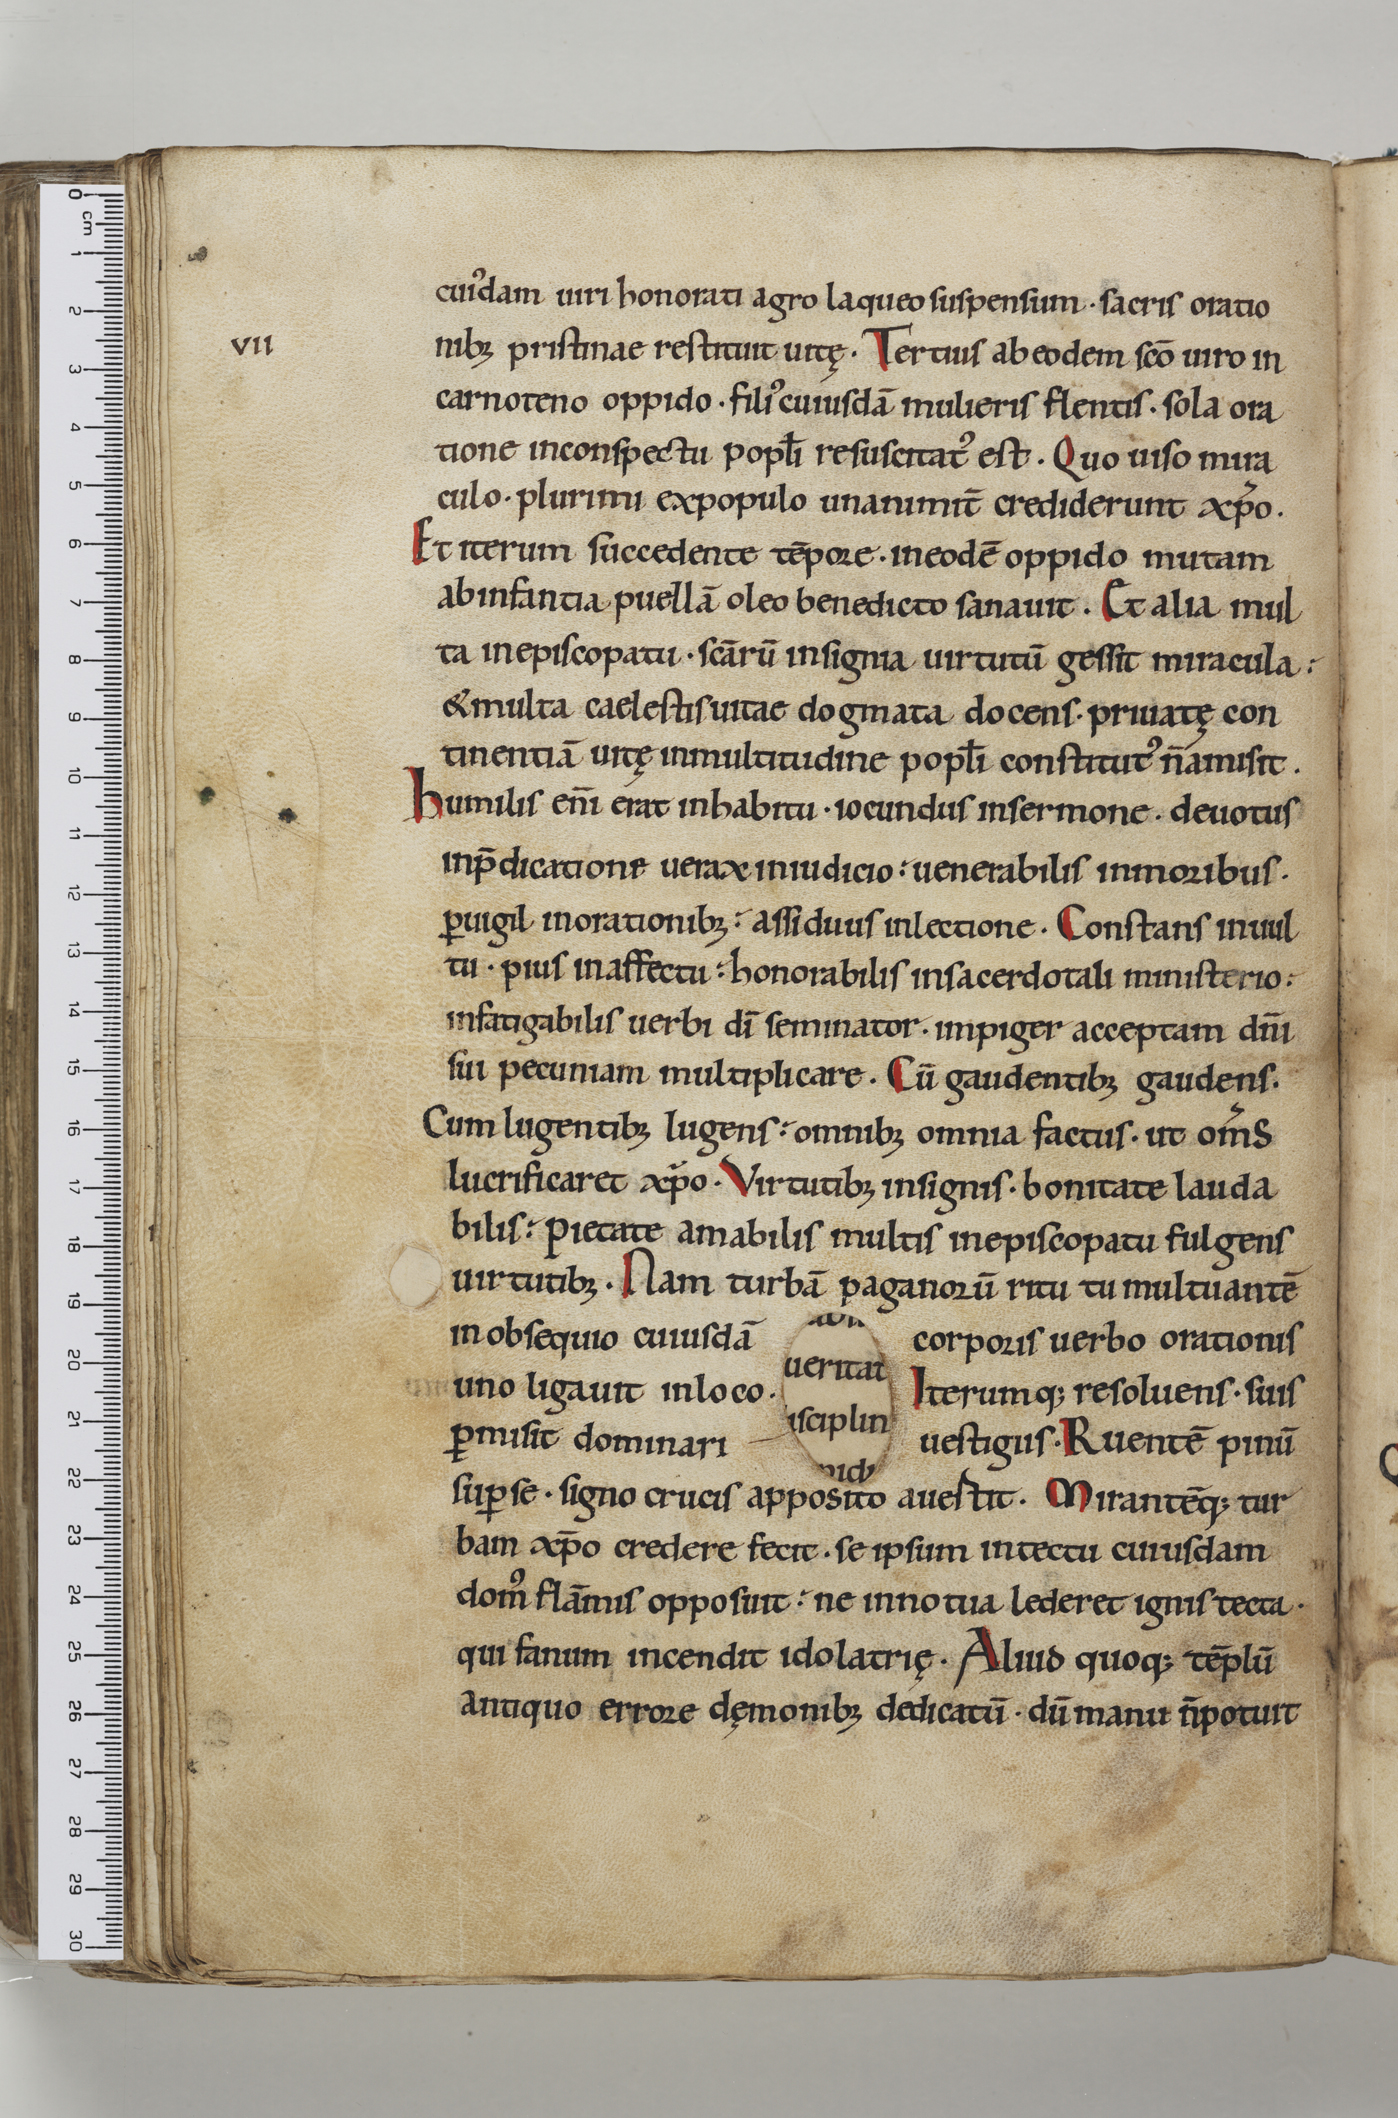 cui᾽dam uiri honorati agro laqueo suspensum · sacris oratio
VII
nibꝫ pristinae restituit uitę. Tertius ab eodem scō uiro in
carnoteno oppido · fili᾽ cuiusdā mulieris flentis · sola ora
tione inconspectu popl̄i resuscitat᾽ est. Quo uiso mira
culo · plurimi expopulo unanimit̄ crediderunt xp̄o.
Et iterum succedente tēpore · ineodē oppido mutam
abinfantia puellā oleo benedicto sanauit. Et alia mul
ta inepiscopatu · scārū insignia uirtutū gessit miracula:
& multa caelestis uitae dogmata docens · priuatę con
tinentiā uitę inmultitudine popl̄i constitut᾽ n̄ amisit.
Humilis eni̅ erat inhabitu · iocundus insermone · deuotus
inp̄dicatione uerax iniudicio: uenerabilis inmoribus.
ꝑuigil inorationibꝫ: assiduus inlectione. Constans inuul
tu · pius inaffectu: honorabilis insacerdotali ministerio:
infatigabilis uerbi dī seminator · impiger acceptam dn̄i
sui pecuniam multiplicare. Cū gaudentibꝫ gaudens.
Cum lugentibꝫ lugens: omnibꝫ omnia factus · ut om̄s
lucrificaret xp̄o. Virtutibꝫ insignis · bonitate lauda
bilis: pietate amabilis multis inepiscopatu fulgens
uirtutibꝫ. Nam turbā paganorū ritu tumultuantē
in obsequio cuiusdā corporis uerbo orationis
ueritat
uno ligauit inloco. Iterumqꝫ resoluens · suis
isciplin
ꝑmisit dominari uestigiis. Ruentē pinū
suꝑ se · signo crucis apposito auestit. Mirantēqꝫ tur
bam xp̄o credere fecit · se ipsum intectu cuiusdam
dom᾽ flāmis opposuit: ne innotua lederet ignis tecta ·
qui fanum incendit idolatrię. Aliud quoqꝫ tēplū
antiquo errore dęmonibꝫ dedicatū · dū manu n̄ potuit